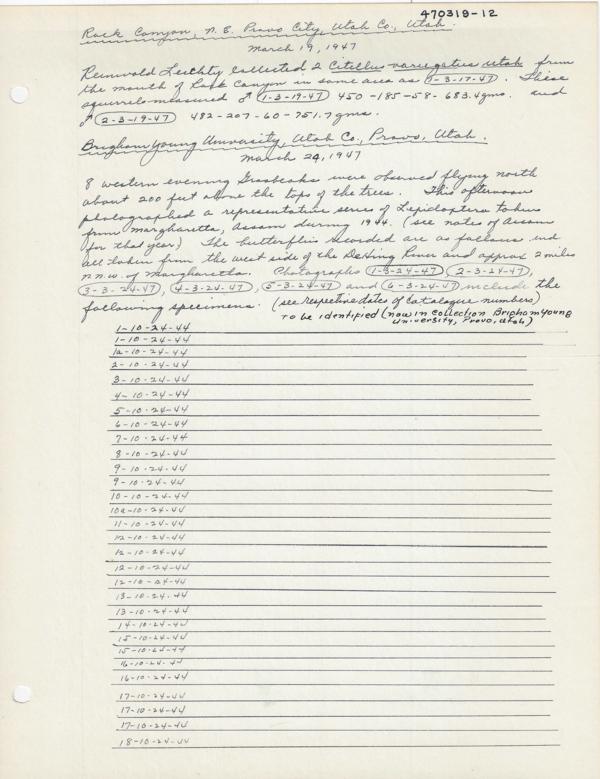 470319-12
Rock Canyon, N.E. Provo City, Utah Co., Utah.
March 19, 1947
Reinwold Leichty collected 2 Citellus variegatus utah from
the mouth of Rock Canyon in same area as 1-3-17-47. These
squirrels measured ♂ 1-3-19-47 450-185-58-683.4gms. and
♂ 2-3-19-47 482-207-60-751.7gms.
Brigham Young University, Utah Co., Provo, Utah.
March 24, 1947
8 western evening Grosbeaks were observed flying north
about 200 feet above the tops of the trees. This afternoon
photographed a representative series of Lepidoptera taken
from margharetta, Assam during 1944. (see notes of Assam
for that year) The butterflies recorded are as follows and
all taken from the west side of the DeHing River and approx 2 miles
n.n.w. of margharetta. Photographs 1-3-24-47, 2-3-24-47,
3-3-24-47, 4-3-24-47, 5-3-24-47 and 6-3-24-47 include the
following specimens. (see respective dates of catalogue numbers)
To be identified (now in collection Brigham Young
University, Provo, Utah)
1-10-24-44
1-10-24-44
1a-10-24-44
2-10-24-44
3-10-24-44
4-10-24-44
5-10-24-44
6-10-24-44
7-10-24-44
8-10-24-44
9-10-24-44
9-10-24-44
10-10-24-44
10a-10-24-44
11-10-24-44
12-10-24-44
12-10-24-44
12-10-24-44
12-10-24-44
13-10-24-44
13-10-24-44
14-10-24-44
15-10-24-44
15-10-24-44
16-10-24-44
16-10-24-44
17-10-24-44
17-10-24-44
17-10-24-44
18-10-24-44